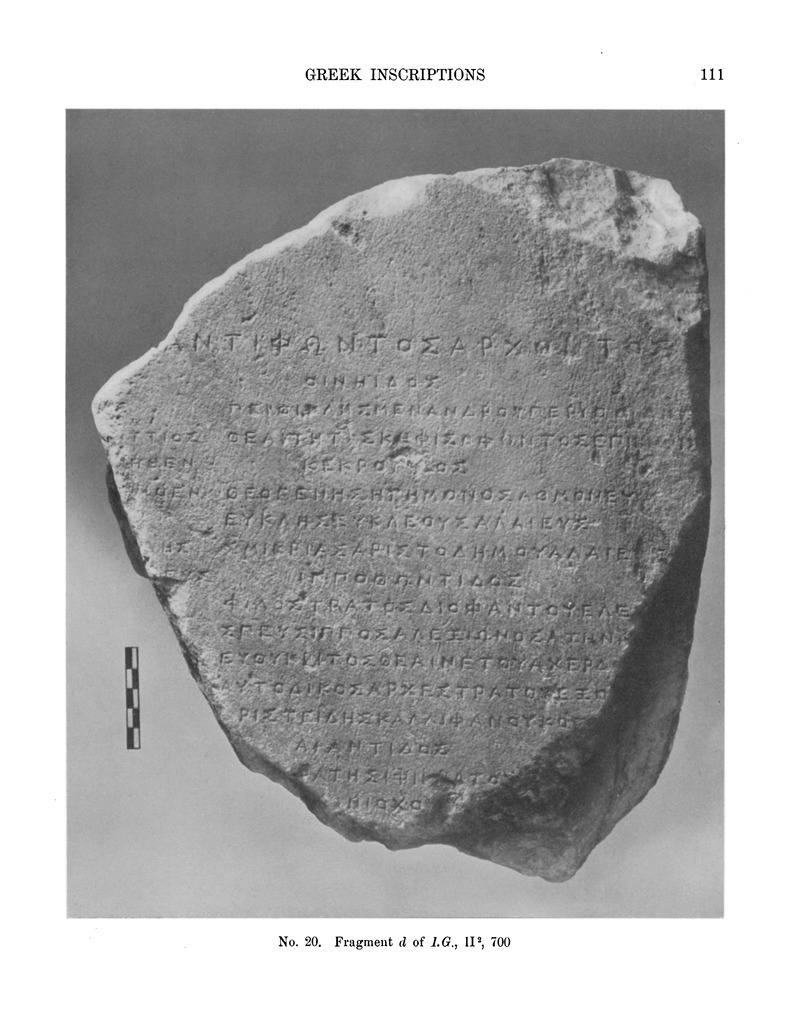 GREEK INSCRIPTIONS
111
ΑΝΤΙΦΩΝΤΟΣΑΡΧΟΝΤΟΣ
ΟΙΝΗΙΔΟΣ
ΜΕΝΑΝΔΡΟΥΠΕΡΙΘΟΙΔΗΣ
ΤΤΙΟΣ ΘΕΑΙΤΗΤΟΣΚΗΦΙΣΟΦΩΝΤΟΣΕΠΙ
ΗΘΕΝ ΚΕΚΡΟΠΙΔΟΣ
ΗΘΕΝ ΘΕΟΓΕΝΗΣΗΓΗΜΟΝΟΣΑΘΜΟΝΕΥ
ΕΥΚΛΗΣΕΥΚΛΕΟΥΣΑΛΑΙΕΥΣ
ΗΣ ΣΜΙΚΡΙΑΣΑΡΙΣΤΟΔΗΜΟΥΑΛΑΙΕ
ΕΥΣ ΙΠΠΟΘΩΝΤΙΔΟΣ
ΦΙΛΟΣΤΡΑΤΟΣΔΙΟΦΑΝΤΟΥΕΛΕ
ΣΠΕΥΣΙΠΠΟΣΑΛΕΞΙΩΝΟΣΑΖΗΝΙ
ΕΥΘΥΚΡΙΤΟΣΘΕΑΙΝΕΤΟΥΑΧΕΡΔ
ΑΥΤΟΔΙΚΟΣΑΡΧΕΣΤΡΑΤΟΥΕΞΟ
ΡΙΣΤΕΙΔΗΣΚΑΛΛΙΦΑΝΟΥΚΟΣ
ΑΙΑΝΤΙΔΟΣ
ΑΤΗΣΙΦΙΚΡΑΤΟΥ
ΝΙΟΧΟ
No. 20. Fragment d of I.G., II², 700